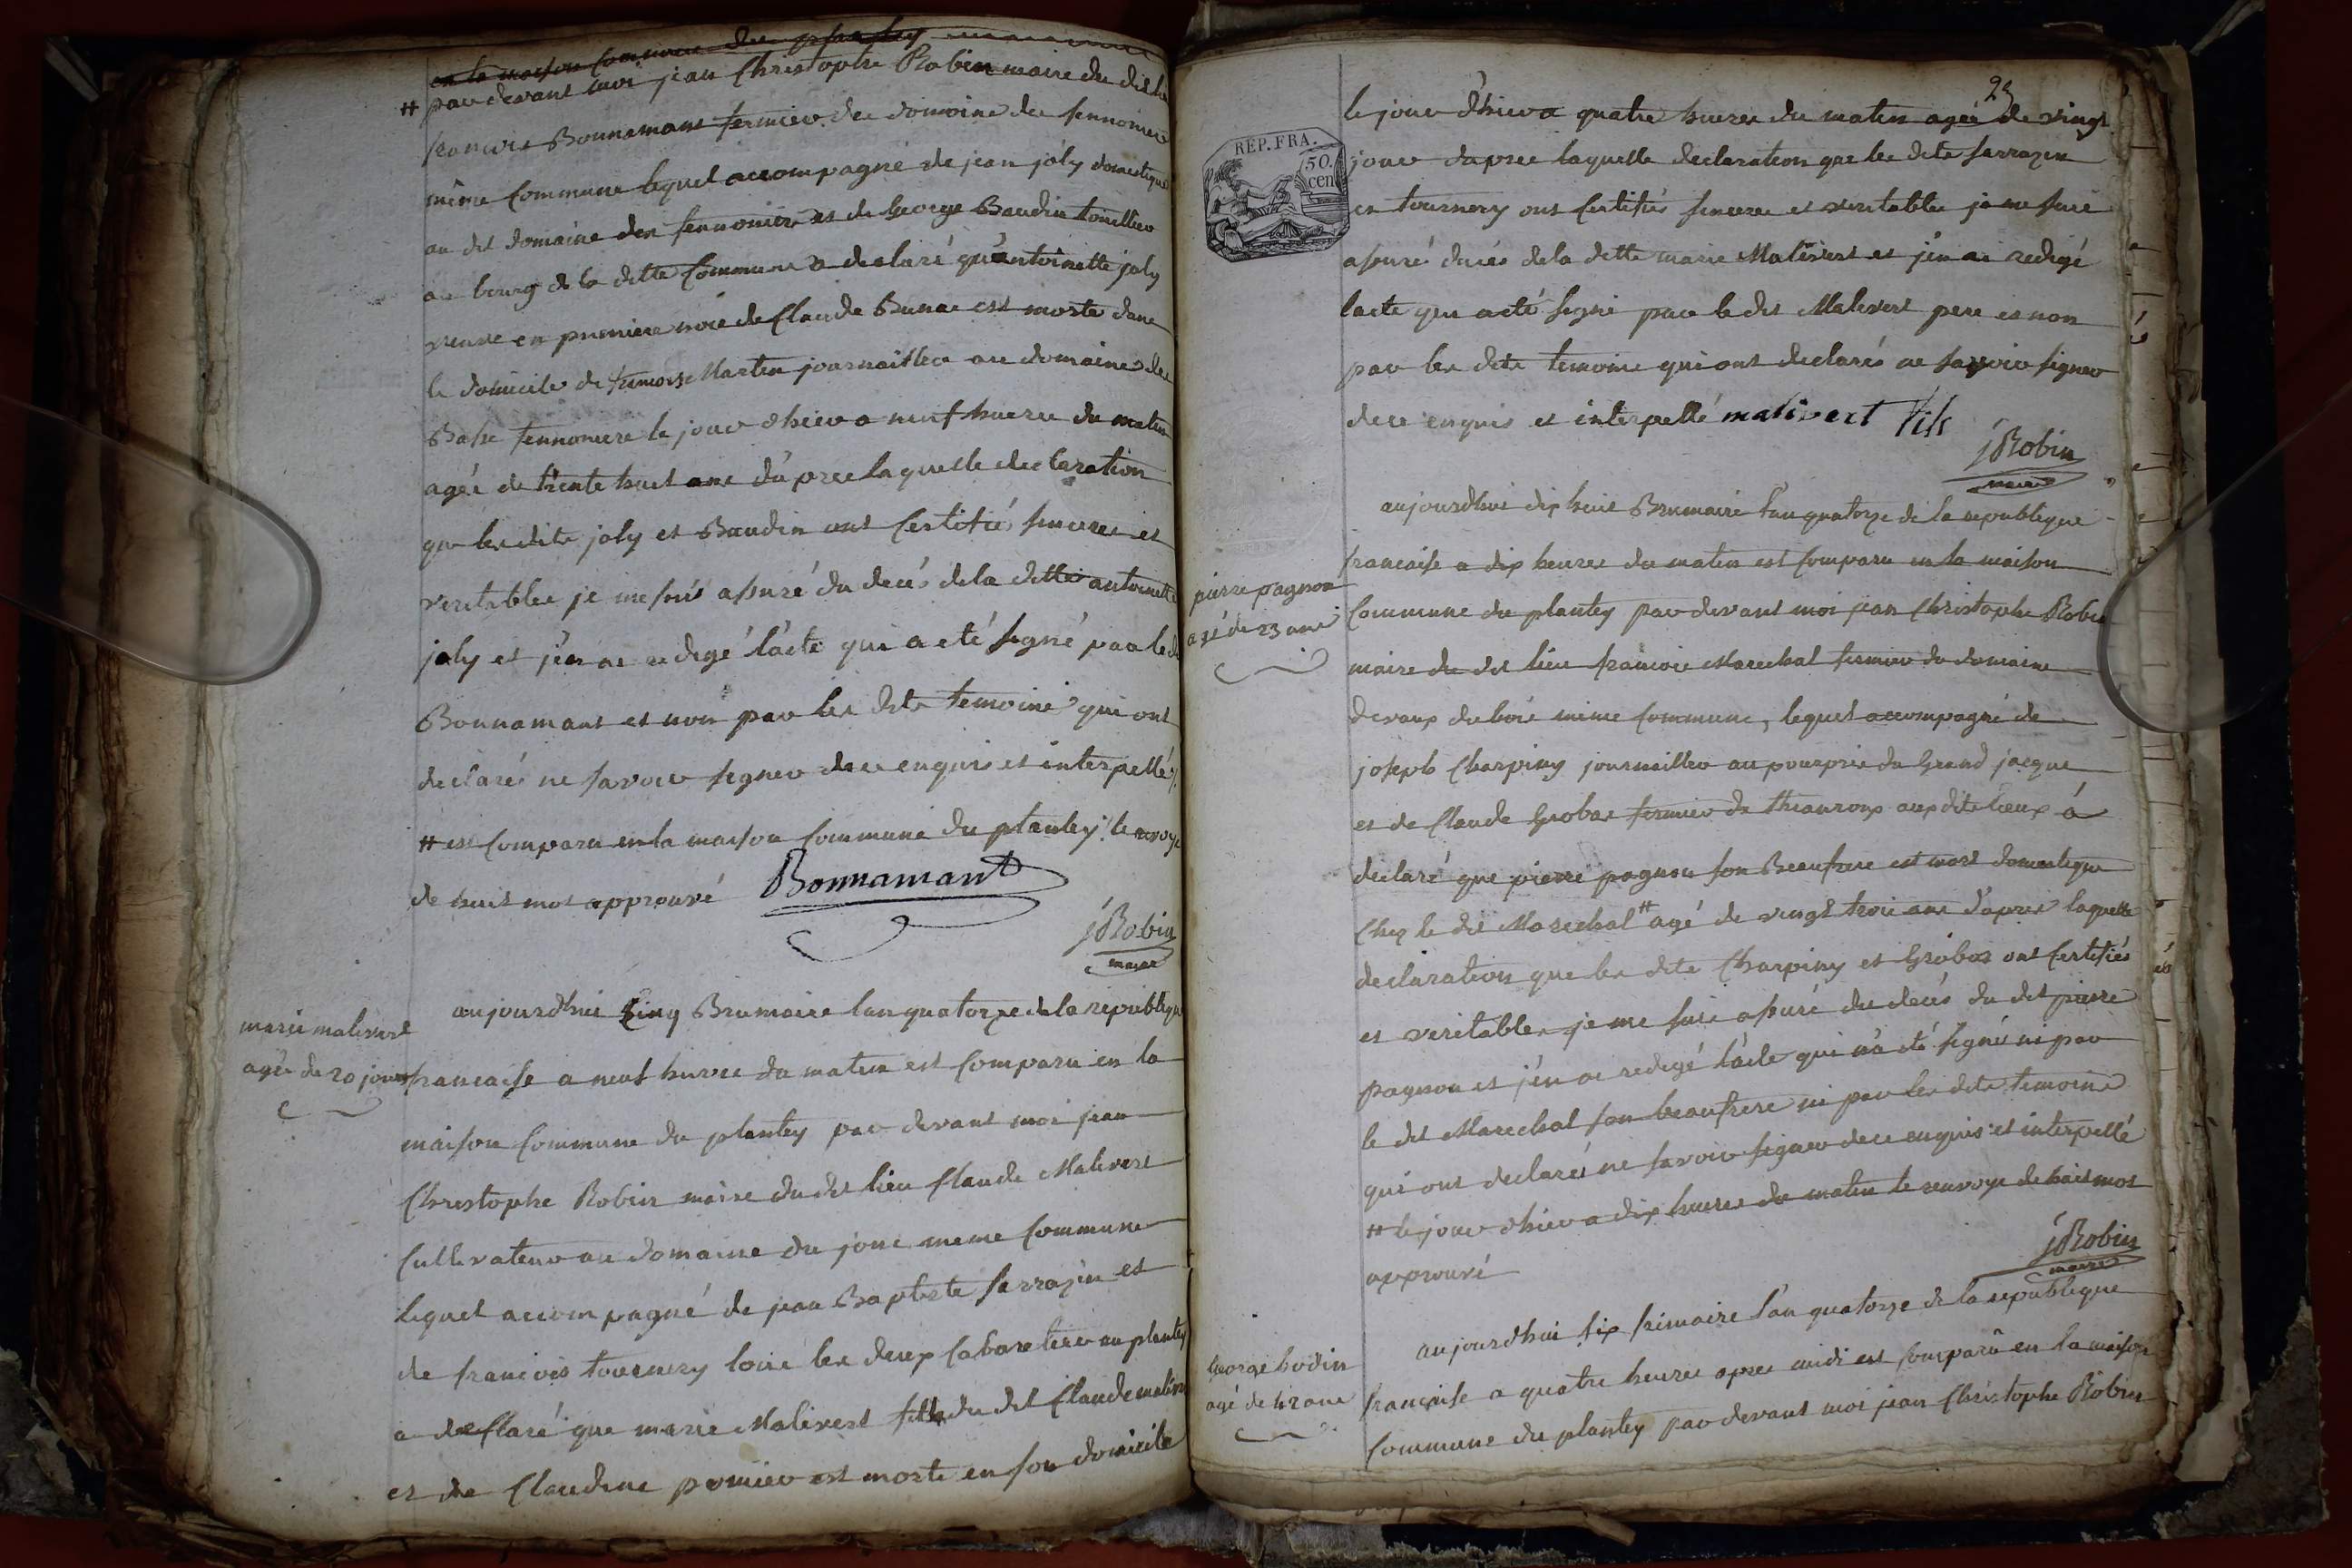 en la maison commune du plantey
# par devant moi jean Christophe Robin maire du dit lieu
francois Bonnamant fermier du domaine des fennonière
même Commune lequel accompagné de jean joly domestique
au dit domaine des fennonière et de George Baudin
au bourg de la ditte Commune a declaré qu'antoinette joly
veuve en premiere noce de Claude Buna est morte dans
le domicile de Martin journaillier au domaine de
Basse fennoniere le jour d'hier a neuf heures du matin
agée de trente huit ans d'après laquelle declaration
que les dits joly et Baudin ont Certifié sincere et
veritable je me suis assuré du decés de la ditte antoinette
joly et j'en ai redigé l'acte qui a eté signé par le dit
Bonnamant et non par les dits temoins qui ont
declarés ne savoir signer de ce enquis et interpellé
# est Comparu en la maison Commune du plantey le renvoye
de huit mot approuvé Bonnamant
jRobin
maire
marie malivert
agée de 20 jours
aujourdhui Cinq Brumaire l'an quatorze de la republique
francaise a neuf heures du matin est Comparu en la
maison Commune du plantey par devant moi jean
Christophe Robin maire du dit lieu Claude Malivert
Cultivateur au domaine du jonc meme Commune
lequel accompagné de jean Baptiste Sarrazin et
de françois tournery tous les deux Cabaretiers au plantey
a declaré que marie Malivert fille du dit Claude malivert
et de Claudine pomier est morte en son domicile
25
REP. FRA.
50
cen
le jour d'hier a quatre heures du matin agée de vingt
jour d'apres laquelle declaration que les dits sarrazin
et tournery ont Certifiés sincere et veritable je me suis
assuré du decés de la ditte marie Malivert et j'en ai redigé
l'acte qui a eté signé par le dit Malivert pere et non
par les dits temoins qui ont declarés ne savoir signer
de ce enquis et interpellé malivert fils
jRobin
maire
pierre pagnon
agé de 23 ans
aujourdhui dix huit Brumaire l'an quatorze de la republique
francaise a dix heures du matin est Comparu en la maison
Commune du plantey par devant moi jean Christophe Robin
maire du dit lieu francois Marechal fermier du domaine
devaux du bois même Commune, lequel accompagné de
joseph Charpiny journaillier au pourpris du Grand jacque
et de Claude Grobas fermier de aux dits lieux à
declaré que pierre pagnon son Beaufrere est mort domestique
Chez le dit Marechal # agé de vingt trois ans d'apres laquelle
declaration que les dits Charpiny et Grobas ont Certifiés
et veritable je me suis assuré du decés du dit pierre
pagnon et j'en ai redigé l'acte qui n'a eté signé ni par
le dit Marechal son beaufrere ni par les dits temoins
qui ont declarés ne savoir signer de ce enquis et interpellé
# le jour d'hier a dix heures du matin le renvoye de huit mot
approuvé
jRobin
maire
George bodin
agé de 42 ans
aujourdhui six frimaire l'an quatorze de la republique
française a quatre heures apres midi est Comparû en la maison
Commune du plantey par devant moi jean Christophe Robin